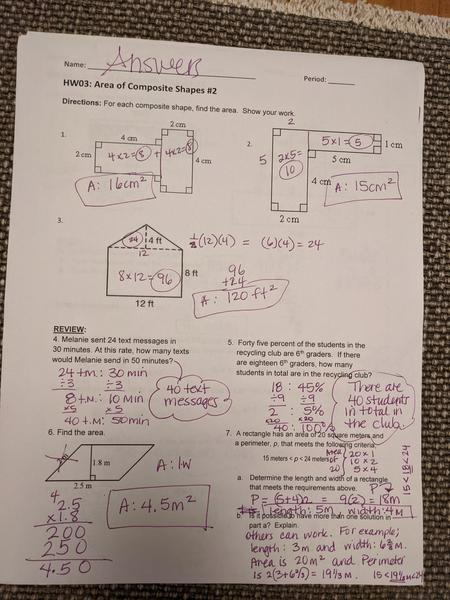 Name: Answers
Period:
HW03: Area of Composite Shapes #2
Directions: For each composite shape, find the area. Show your work.
1.
2 cm
4 cm
2 cm
4x2=8 + 4x2=8
4 cm
A: 16cm²
2.
2
5x1=5
1 cm
5
2x5=
10
5 cm
4 cm
A: 15cm²
2 cm
3.
24
4 ft
12
8x12=96
8 ft
12 ft
½(12)(4) = (6)(4) = 24
96
+24
A: 120 ft²
REVIEW:
4. Melanie sent 24 text messages in
30 minutes. At this rate, how many texts
would Melanie send in 50 minutes?
24 t.m.: 30 min
÷3 ÷3
8 t.m: 10 min
x5 x5
40 t.m: 50min
40 text
messages
5. Forty five percent of the students in
the recycling club are 6th graders. If there
are eighteen 6th graders, how many
students in total are in the recycling club?
18 : 45%
÷9 ÷9
2 : 5%
x20 x20
40 : 100%
There are
40 students
in total in
the club.
6. Find the area.
1.8 m
2.5 m
A: lw
A: 4.5m²
4
2.5
x1.8
200
250
4.50
7. A rectangle has an area of 20 square meters and
a perimeter, p, that meets the following criteria:
15 meters < p < 24 meters
20 x 1
10 x 2
5 x 4
15 < 18 < 24
a. Determine the length and width of a rectangle
that meets the requirements above.
P?
P = (5+4)2 = 9(2) = 18m
length: 5m width: 4m
b. Is it possible to have more than one solution in
part a? Explain.
others can work. For example;
length: 3m and width: 6⅔m.
Area is 20m² and Perimeter
is 2(3+6⅔) = 19⅓m. 15<19⅓m<24